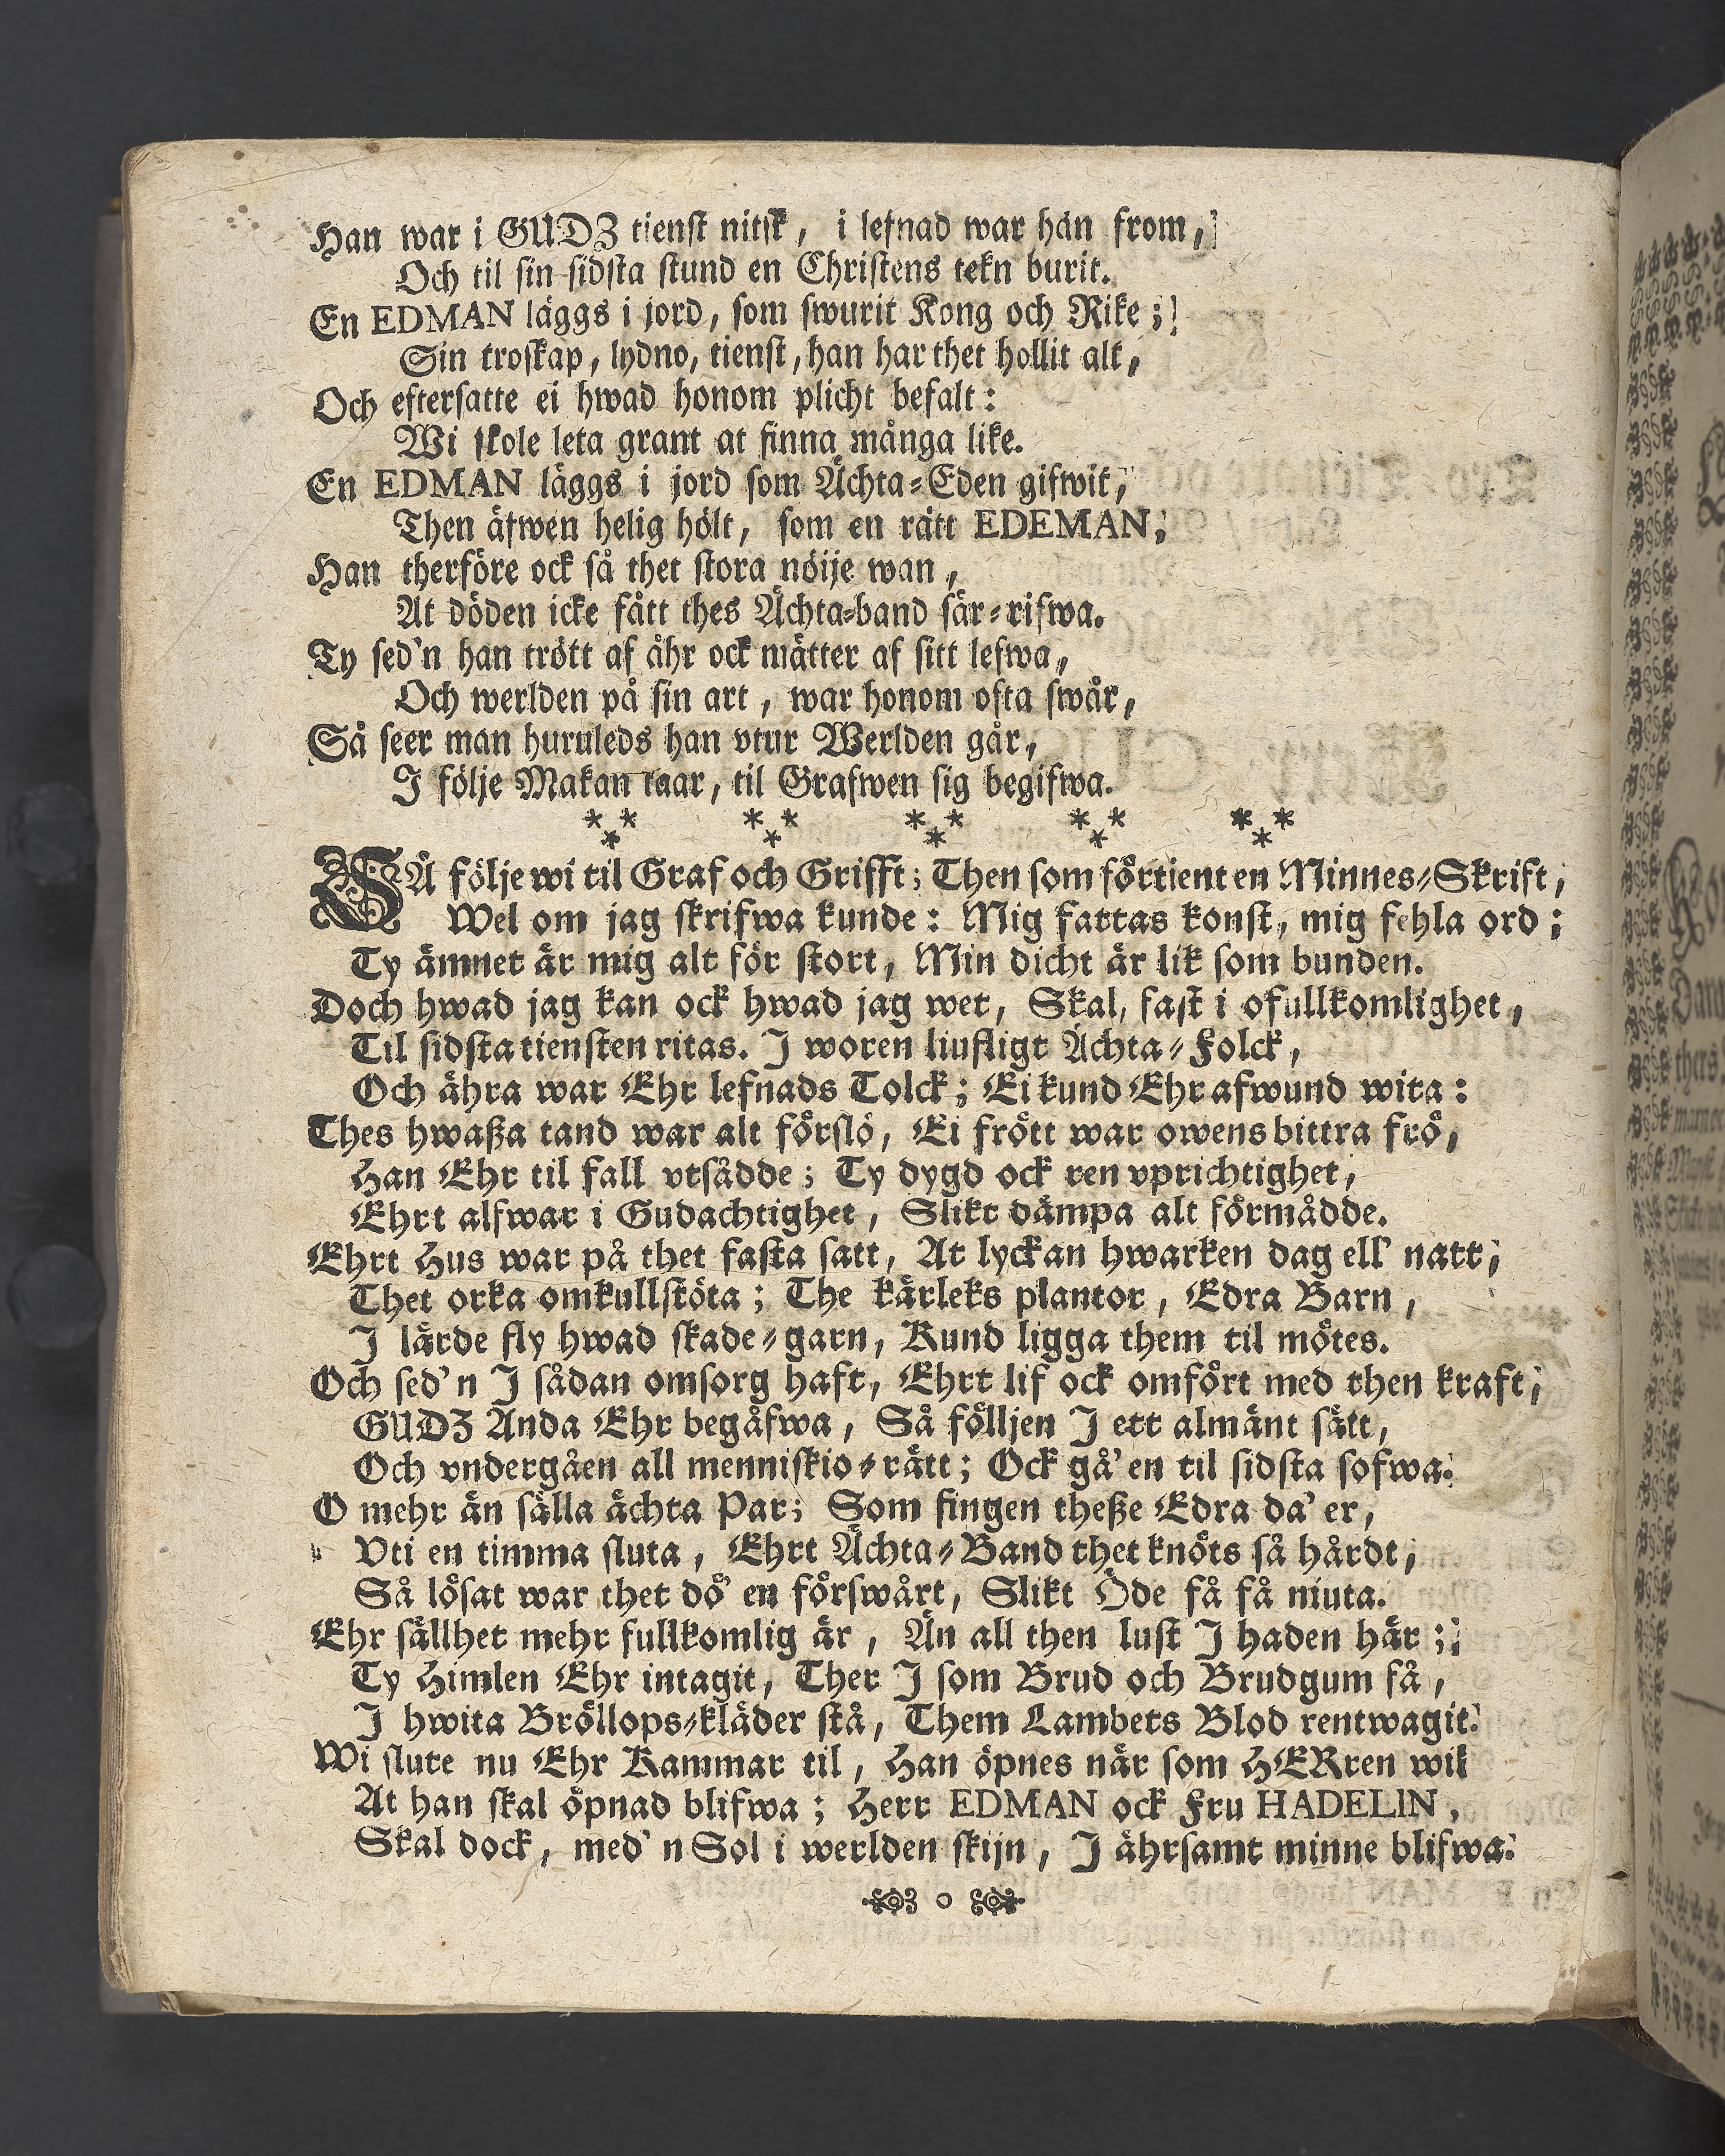 Han war i GUDZ tienst nitsk, i lefnad war han from,
Och til sin sidsta stund en Christens tekn burit.
En EDMAN läggs i jord, som swurit Kong och Rike;
Sin troskap, lydno, tienst, han har thet hollit alt,
Och eftersatte ei hwad honom plicht befalt:
Wi skole leta grant at finna många like.
En EDMAN läggs i jord som Ächta-Eden gifwit,
Then äfwen helig hölt, som en rätt EDEMAN,
Han therföre ock så thet stora nöije wan,
At döden icke fått thes Ächta-band sär-rifwa.
Ty sed'n han trött af åhr ock mätter af sitt lefwa,
Och werlden på sin art, war honom ofta swår,
Så seer man huruleds han vtur Werlden går,
I följe Makan taar, til Grafwen sig begifwa.
*** *** *** *** ***
SÅ följe wi til Graf och Grifft; Then som förtient en Minnes-Skrift,
Wel om jag skrifwa kunde: Mig fattas konst, mig fehla ord;
Ty ämnet är mig alt för stort, Min dicht är lik som bunden.
Doch hwad jag kan ock hwad jag wet, Skal, fast i ofullkomlighet,
Til sidsta tiensten ritas. I woren liufligt Ächta-Folck,
Och ähra war Ehr lefnads Tolck; Ei kund Ehr afwund wita:
Thes hwaßa tand war alt förslö, Ei frött war owens bittra frö,
Han Ehr til fall vtsådde; Ty dygd ock ren vprichtighet,
Ehrt alfwar i Gudachtighet, Slikt dämpa alt förmådde.
Ehrt Hus war på thet fasta satt, At lyckan hwarken dag ell' natt,
Thet orka omkullstöta; The kärleks plantor, Edra Barn,
I lärde fly hwad skade-garn, Kund ligga them til mötes.
Och sed'n I sådan omsorg haft, Ehrt lif ock omfört med then kraft,
GUDZ Anda Ehr begåfwa, Så földjen I ett almänt sätt,
Och vndergåen all menniskio-rätt; Ock gå'en til sidsta sofwa.
O mehr än sälla ächta Par; Som fingen theße Edra da'er,
Vti en timma sluta, Ehrt Ächta-Band thet knöts så hårdt,
Så lösat war thet dö'en förswårt, Slikt Öde få få niuta.
Ehr sällhet mehr fullkomlig är, Än all then lust I haden här;
Ty Himlen Ehr intagit, Ther I som Brud och Brudgum få,
I hwita Bröllops-kläder stå, Them Lambets Blod rentwagit.
Wi slute nu Ehr Kammar til, Han öpnes när som HERren wil
At han skal öpnad blifwa; Herr EDMAN ock Fru HADELIN,
Skal dock, med'n Sol i werlden skijn, I ährsamt minne blifwa.